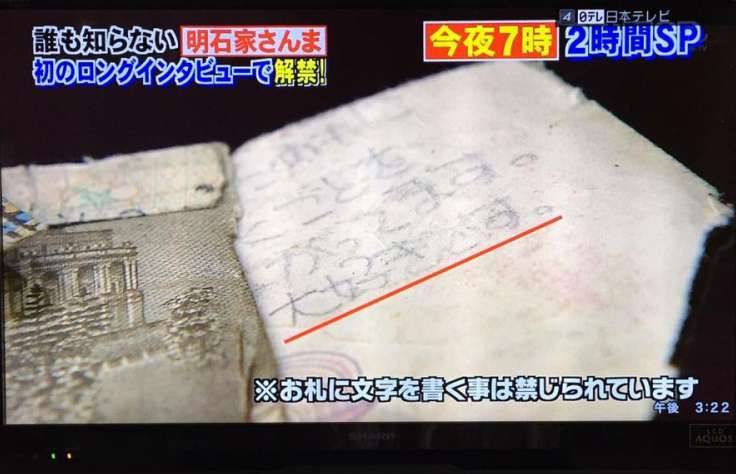 4 日テレ 日本テレビ
誰も知らない 明石家さんま
初のロングインタビューで解禁!
今夜7時 2時間SP
ことを
ってます。
大好きです。
※お札に文字を書く事は禁じられています
午後 3:22
SHARP
LCD
AQUOS